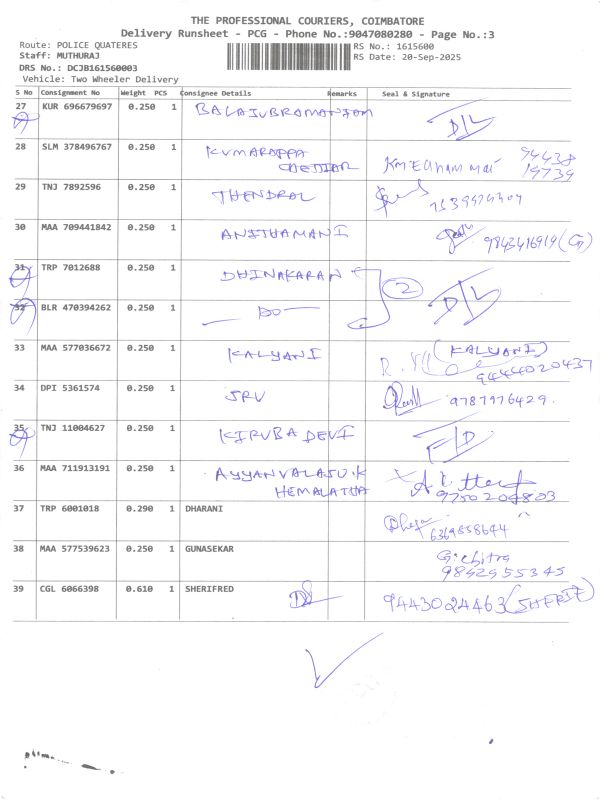 THE PROFESSIONAL COURIERS, COIMBATORE
Delivery Runsheet - PCG - Phone No.:9047080280 - Page No.:3
Route: POLICE QUATERES RS No.: 1615600
Staff: MUTHURAJ RS Date: 20-Sep-2025
DRS No.: DCJB161560003
Vehicle: Two Wheeler Delivery
S No Consignment No Weight PCS Consignee Details Remarks Seal & Signature
27 KUR 696679697 0.250 1 BALASUBRAMANIAM D/L
28 SLM 378496767 0.250 1 KUMARAPPA
CHETTIAR 94438
19739
29 TNJ 7892596 0.250 1 THENDRAL
30 MAA 709441842 0.250 1 ANITHAMANI 9843416919 (G)
31 TRP 7012688 0.250 1 DHINAKARAN 2 D/L
32 BLR 470394262 0.250 1 — DO —
33 MAA 577036672 0.250 1 KALYANI (KALYANI)
9444020437
34 DPI 5361574 0.250 1 SRV 9787976429.
35 TNJ 11004627 0.250 1 KIRUBA DEVI
36 MAA 711913191 0.250 1
HEMALATHA 9750204803
37 TRP 6001018 0.290 1 DHARANI
6369858644
38 MAA 577539623 0.250 1 GUNASEKAR G. chitra
9842955345
39 CGL 6066398 0.610 1 SHERIFRED 9443024463